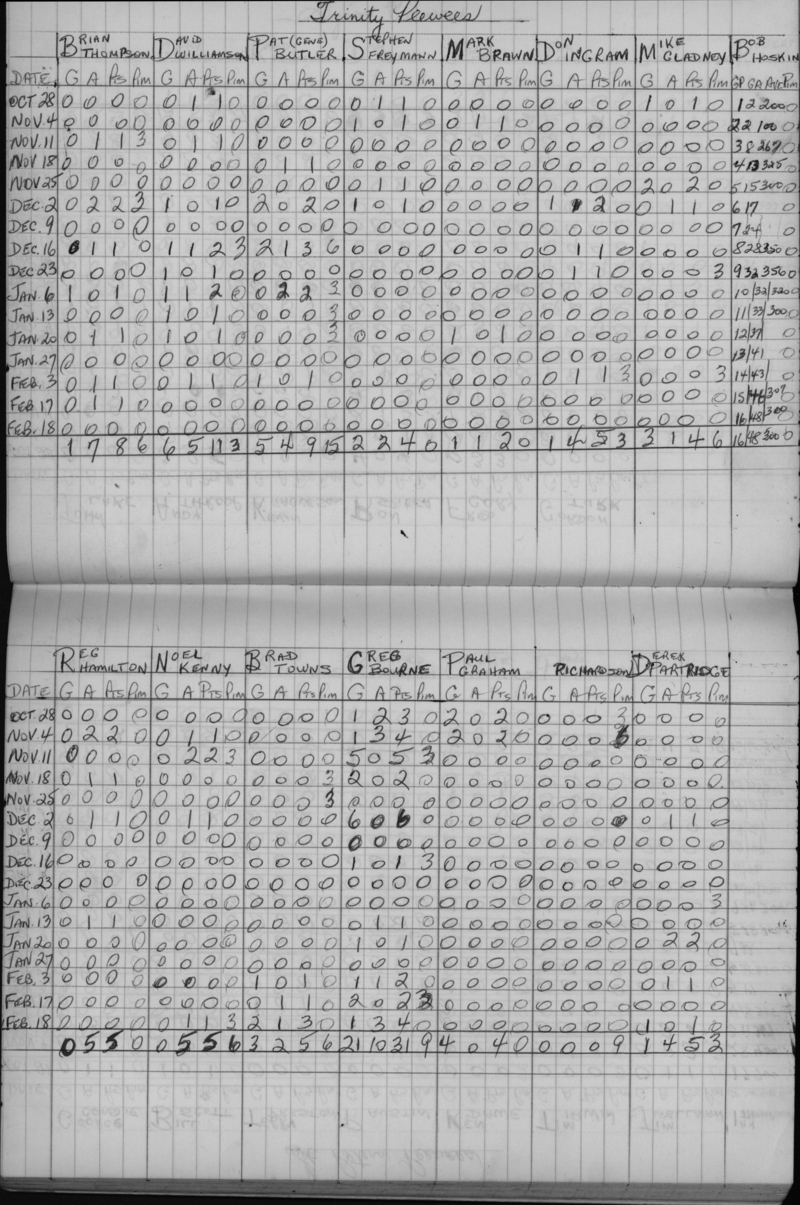 Trinity Peewees
BRIAN THOMPSON DAVID WILLIAMSON PAT (GENE) BUTLER STEPHEN FREYMANN MARK BRAWN DON INGRAM MIKE GLADNEY BOB HOSKIN
DATE G A Pts Pim G A Pts Pim G A Pts Pim G A Pts Pim G A Pts Pim G A Pts Pim G A Pts Pim GP GA Ave Pim
OCT 28 0 0 0 0 0 1 1 0 0 0 0 0 0 1 1 0 0 0 0 0 0 0 0 0 1 0 1 0 1 2 200 0
NOV. 4 0 0 0 0 0 0 0 0 0 0 0 0 1 0 1 0 0 1 1 0 0 0 0 0 0 0 0 0 2 2 100 0
NOV. 11 0 1 1 3 0 1 1 0 0 0 0 0 0 0 0 0 0 0 0 0 0 0 0 0 0 0 0 0 3 8 267 0
NOV 18 0 0 0 0 0 0 0 0 0 1 1 0 0 0 0 0 0 0 0 0 0 0 0 0 0 0 0 0 4 13 325 0
NOV 25 0 0 0 0 0 0 0 0 0 0 0 0 0 1 1 0 0 0 0 0 0 0 0 0 2 0 2 0 5 15 300 0
DEC. 2 0 2 2 3 1 0 1 0 2 0 2 0 1 0 1 0 0 0 0 0 1 1 2 0 0 1 1 0 6 17
DEC. 9 0 0 0 0 0 0 0 0 0 0 0 0 0 0 0 0 0 0 0 0 0 0 0 0 0 0 0 0 7 24 0
DEC. 16 0 1 1 0 1 1 2 3 2 1 3 6 0 0 0 0 0 0 0 0 0 1 1 0 0 0 0 0 8 28 350 0
DEC 23 0 0 0 0 1 0 1 0 0 0 0 0 0 0 0 0 0 0 0 0 0 1 1 0 0 0 0 3 9 32 356 0
JAN. 6 1 0 1 0 1 1 2 0 0 2 2 3 0 0 0 0 0 0 0 0 0 0 0 0 0 0 0 0 10/32/320 0
JAN. 13 0 0 0 0 1 0 1 0 0 0 0 3 0 0 0 0 0 0 0 0 0 0 0 0 0 0 0 0 11/33/300 0
JAN. 20 0 1 1 0 1 0 1 0 0 0 0 3 0 0 0 0 1 0 1 0 0 0 0 0 0 0 0 0 12/37/ 0
JAN. 27 0 0 0 0 0 0 0 0 0 0 0 0 0 0 0 0 0 0 0 0 0 0 0 0 0 0 0 0 13/41/ 0
FEB. 3 0 1 1 0 0 1 1 0 1 0 1 0 0 0 0 0 0 0 0 0 0 1 1 3 0 0 0 3 14/43/ 0
FEB 17 0 1 1 0 0 0 0 0 0 0 0 0 0 0 0 0 0 0 0 0 0 0 0 0 0 0 0 0 15/46/307 0
FEB. 18 0 0 0 0 0 0 0 0 0 0 0 0 0 0 0 0 0 0 0 0 0 0 0 0 0 0 0 0 16/48/300 0
1 7 8 6 6 5 11 3 5 4 9 15 2 2 4 0 1 1 2 0 1 4 5 3 3 1 4 6 16/48 300 0
REG HAMILTON NOEL KENNY BRAD TOWNS GREG BOURNE PAUL GRAHAM RICHARDSON DEREK PARTRIDGE
DATE G A Pts Pim G A Pts Pim G A Pts Pim G A Pts Pim G A Pts Pim G A Pts Pim G A Pts Pim
OCT. 28 0 0 0 0 0 0 0 0 0 0 0 0 1 2 3 0 2 0 2 0 0 0 0 3 0 0 0 0
NOV. 4 0 2 2 0 0 1 1 0 0 0 0 0 1 3 4 0 2 0 2 0 0 0 0 6 0 0 0 0
NOV. 11 0 0 0 0 0 2 2 3 0 0 0 0 5 0 5 3 0 0 0 0 0 0 0 0 0 0 0 0
NOV. 18 0 1 1 0 0 0 0 0 0 0 0 3 2 0 2 0 0 0 0 0 0 0 0 0 0 0 0 0
NOV. 25 0 0 0 0 0 0 0 0 0 0 0 3 0 0 0 0 0 0 0 0 0 0 0 0 0 0 0 0
DEC. 2 0 1 1 0 0 1 1 0 0 0 0 0 6 0 6 0 0 0 0 0 0 0 0 0 0 1 1 0
DEC. 9 0 0 0 0 0 0 0 0 0 0 0 0 0 0 0 0 0 0 0 0 0 0 0 0 0 0 0 0
DEC. 16 0 0 0 0 0 0 0 0 0 0 0 0 1 0 1 3 0 0 0 0 0 0 0 0 0 0 0 0
DEC 23 0 0 0 0 0 0 0 0 0 0 0 0 0 0 0 0 0 0 0 0 0 0 0 0 0 0 0 0
JAN. 6 0 0 0 0 0 0 0 0 0 0 0 0 0 0 0 0 0 0 0 0 0 0 0 0 0 0 0 3
JAN. 13 0 1 1 0 0 0 0 0 0 0 0 0 0 1 1 0 0 0 0 0 0 0 0 0 0 0 0 0
JAN 20 0 0 0 0 0 0 0 0 0 0 0 0 1 0 1 0 0 0 0 0 0 0 0 0 0 2 2 0
JAN 27 0 0 0 0 0 0 0 0 0 0 0 0 0 0 0 0 0 0 0 0 0 0 0 0 0 0 0 0
FEB. 3 0 0 0 0 0 0 0 0 1 0 1 0 1 1 2 0 0 0 0 0 0 0 0 0 0 1 1 0
FEB. 17 0 0 0 0 0 0 0 0 0 1 1 0 2 0 2 3 0 0 0 0 0 0 0 0 0 0 0 0
FEB. 18 0 0 0 0 0 1 1 3 2 1 3 0 1 3 4 0 0 0 0 0 0 0 0 0 1 0 1 0
0 5 5 0 0 5 5 6 3 2 5 6 21 10 31 9 4 0 4 0 0 0 0 9 1 4 5 3